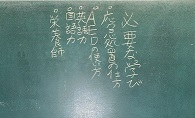 必要な学び
°応急処置の仕方
°AEDの使い方
°英語力
°国語力
°栄養師